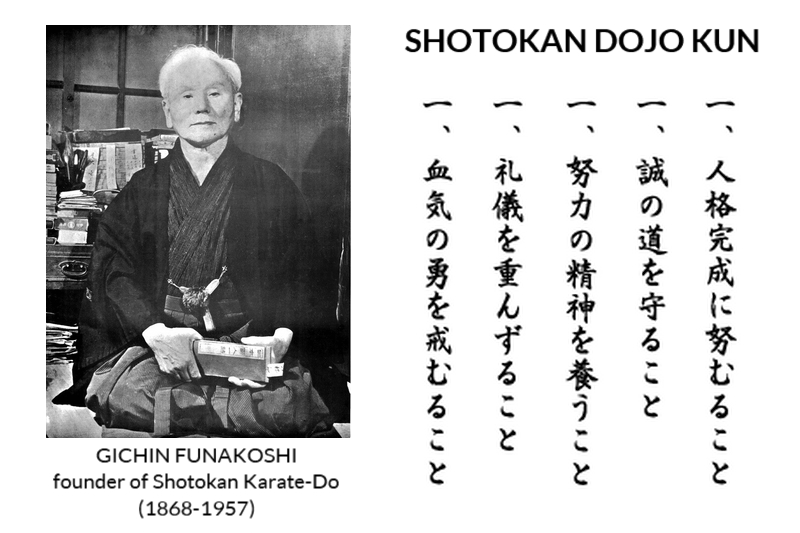 SHOTOKAN DOJO KUN
一、人格完成に努むること
一、誠の道を守ること
一、努力の精神を養うこと
一、礼儀を重んずること
一、血気の勇を戒むること
GICHIN FUNAKOSHI
founder of Shotokan Karate-Do
(1868-1957)